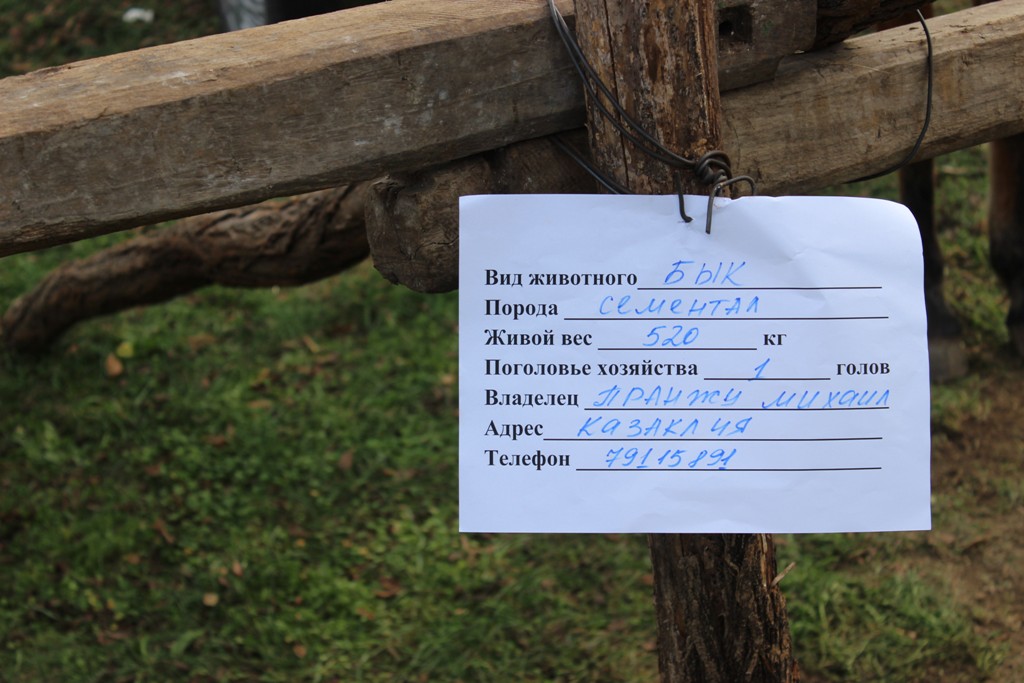 Вид животного БЫК
Порода СЕМЕНТАЛ
Живой вес 520 кг
Поголовье хозяйства 1 голов
Владелец ПРАНЖУ МИХАИЛ
Адрес КАЗАКЛИЯ
Телефон 79115891